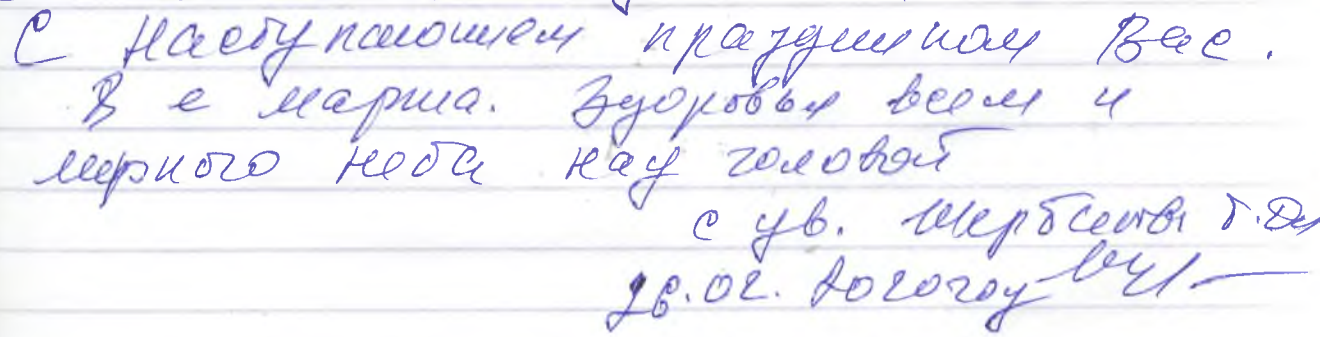 С Наступающем праздником Вас.
8 е марта. Здоровья всем и
мирного неба над головой
с ув. Щербаковы Т.
26.02.2020г